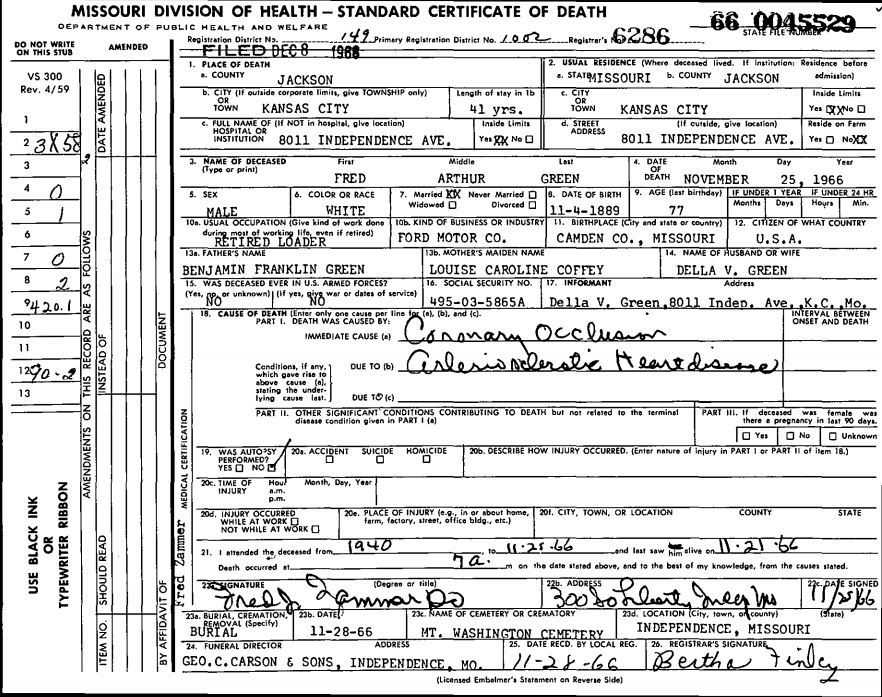 MISSOURI DIVISION OF HEALTH — STANDARD CERTIFICATE OF DEATH
DEPARTMENT OF PUBLIC HEALTH AND WELFARE
66 0045529
STATE FILE NUMBER
Registration District No. 149 Primary Registration District No. 1002 Registrar's No. 6286
FILED DEC 8 1966
DO NOT WRITE ON THIS STUB
AMENDED
VS 300
Rev. 4/59
1
2 3X58
3
4 0
5 1
6
7 0
8 2
9 420.1
10
11
12 90-2
13
USE BLACK INK
OR
TYPEWRITER RIBBON
AMENDMENTS ON THIS RECORD ARE AS FOLLOWS
DATE AMENDED
INSTEAD OF
SHOULD READ
ITEM NO.
DOCUMENT
BY AFFIDAVIT OF
MEDICAL CERTIFICATION
Fred Zammer
1. PLACE OF DEATH
a. COUNTY JACKSON
2. USUAL RESIDENCE (Where deceased lived. If institution: Residence before admission)
a. STATE MISSOURI b. COUNTY JACKSON
b. CITY (If outside corporate limits, give TOWNSHIP only) OR TOWN KANSAS CITY
Length of stay in 1b 41 yrs.
c. CITY OR TOWN KANSAS CITY
Inside Limits Yes XX No
c. FULL NAME OF (If NOT in hospital, give location) HOSPITAL OR INSTITUTION 8011 INDEPENDENCE AVE.
Inside Limits Yes XX No
d. STREET ADDRESS (If outside, give location) 8011 INDEPENDENCE AVE.
Reside on Farm Yes No XX
3. NAME OF DECEASED (Type or print) First Middle Last
FRED ARTHUR GREEN
4. DATE OF DEATH Month Day Year
NOVEMBER 25, 1966
5. SEX MALE
6. COLOR OR RACE WHITE
7. Married XX Never Married Widowed Divorced
8. DATE OF BIRTH 11-4-1889
9. AGE (last birthday) 77
IF UNDER 1 YEAR Months Days
IF UNDER 24 HR Hours Min.
10a. USUAL OCCUPATION (Give kind of work done during most of working life, even if retired) RETIRED LOADER
10b. KIND OF BUSINESS OR INDUSTRY FORD MOTOR CO.
11. BIRTHPLACE (City and state or country) CAMDEN CO., MISSOURI
12. CITIZEN OF WHAT COUNTRY U.S.A.
13a. FATHER'S NAME BENJAMIN FRANKLIN GREEN
13b. MOTHER'S MAIDEN NAME LOUISE CAROLINE COFFEY
14. NAME OF HUSBAND OR WIFE DELLA V. GREEN
15. WAS DECEASED EVER IN U.S. ARMED FORCES? (Yes, no, or unknown) (If yes, give war or dates of service) NO NO
16. SOCIAL SECURITY NO. 495-03-5865A
17. INFORMANT Address
Della V. Green, 8011 Inden. Ave., K.C., Mo.
18. CAUSE OF DEATH (Enter only one cause per line for (a), (b), and (c).
PART I. DEATH WAS CAUSED BY:
INTERVAL BETWEEN ONSET AND DEATH
IMMEDIATE CAUSE (a) Coronary Occlusion
Conditions, if any, which gave rise to above cause (a), stating the underlying cause last.
DUE TO (b) Arteriosclerotic Heart disease
DUE TO (c)
PART II. OTHER SIGNIFICANT CONDITIONS CONTRIBUTING TO DEATH but not related to the terminal disease condition given in PART I (a)
PART III. If deceased was female was there a pregnancy in last 90 days.
Yes No Unknown
19. WAS AUTOPSY PERFORMED? YES NO
20a. ACCIDENT SUICIDE HOMICIDE
20b. DESCRIBE HOW INJURY OCCURRED. (Enter nature of injury in PART I or PART II of item 18.)
20c. TIME OF INJURY Hour a.m. p.m. Month, Day, Year
20d. INJURY OCCURRED WHILE AT WORK NOT WHILE AT WORK
20e. PLACE OF INJURY (e.g., in or about home, farm, factory, street, office bldg., etc.)
20f. CITY, TOWN, OR LOCATION COUNTY STATE
21. I attended the deceased from 1940 to 11-25-66 and last saw him alive on 11-21-66
Death occurred at 7a. m on the date stated above, and to the best of my knowledge, from the causes stated.
22a. SIGNATURE (Degree or title) Fred J. Zammar DO
22b. ADDRESS 300 So Liberty
22c. DATE SIGNED 11/25/66
23a. BURIAL, CREMATION, REMOVAL (Specify) BURIAL
23b. DATE 11-28-66
23c. NAME OF CEMETERY OR CREMATORY MT. WASHINGTON CEMETERY
23d. LOCATION (City, town, or county) (State) INDEPENDENCE, MISSOURI
24. FUNERAL DIRECTOR ADDRESS
GEO.C.CARSON & SONS, INDEPENDENCE, MO.
25. DATE RECD. BY LOCAL REG. 11-28-66
26. REGISTRAR'S SIGNATURE Bertha Finley
(Licensed Embalmer's Statement on Reverse Side)